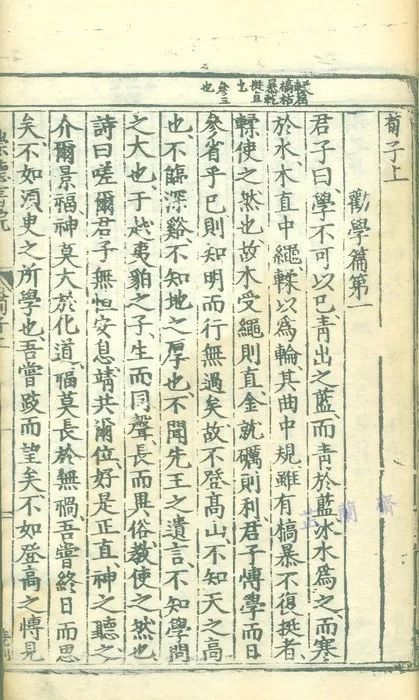 輮屈
槁枯
暴乾
挺直
也
參三
也
荀子上
勸學篇第一
君子曰學不可以已青出之藍而青於藍冰水爲之而寒
於水木直中繩輮以爲輪其曲中規雖有槁暴不復挺者
輮使之然也故木受繩則直金就礪則利君子博學而日
參省乎己則知明而行無過矣故不登高山不知天之高
也不臨深谿不知地之厚也不聞先王之遺言不知學問
之大也于越夷豹之子生而同聲長而異俗教使之然也
詩曰嗟爾君子無恒安息靖共爾位好是正直神之聽之
介爾景福神莫大於化道福莫長於無禍吾嘗終日而思
矣不如須臾之所學也吾嘗跂而望矣不如登高之博見
芷蘭齋